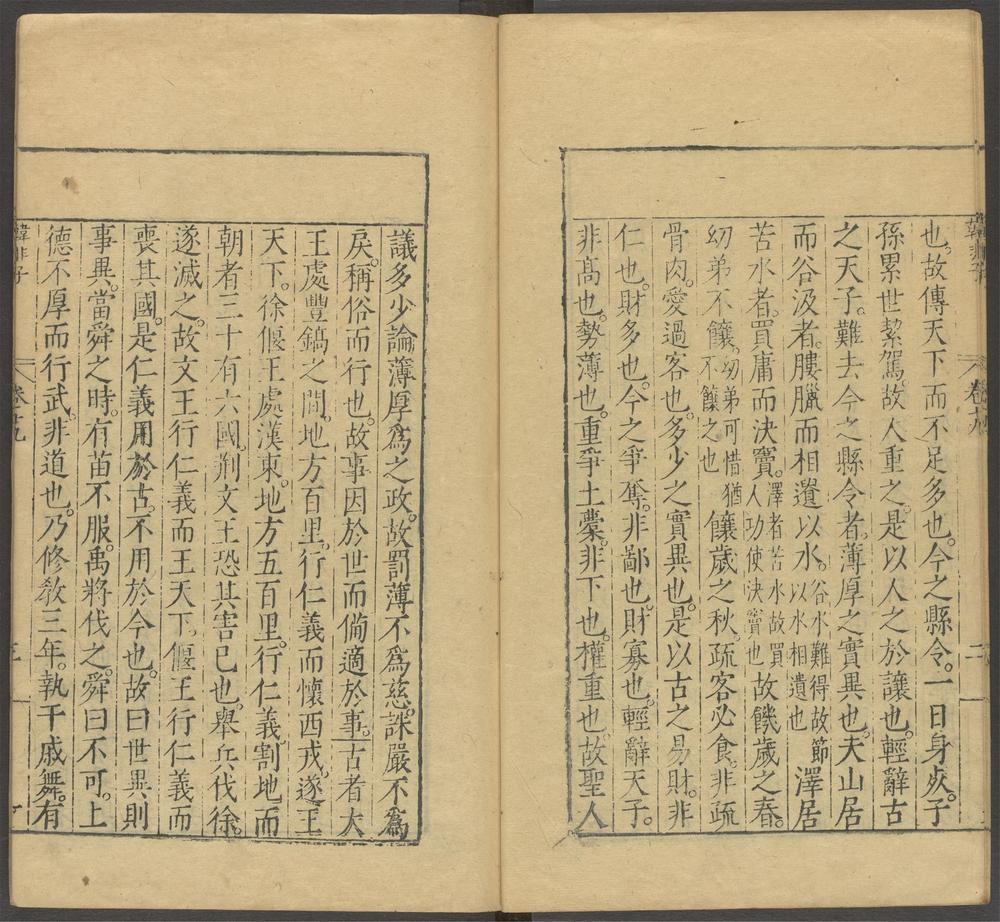 韓非子 卷十九 二
也。故傳天下而不足多也。今之縣令。一日身歿。子
孫累世絜駕。故人重之。是以人之於讓也。輕辭古
之天子。難去今之縣令者。薄厚之實異也。夫山居
而谷汲者。膢臘而相遺以水。谷水難得故節以水相遺也澤居
苦水者。買庸而決竇。澤者苦水故買人功使決竇也故饑歲之春。
幼弟不饟。幼弟可惜猶不饟之也饟歲之秋。疏客必食。非疏
骨肉。愛過客也。多少之實異也。是以古之易財。非
仁也。財多也。今之爭奪。非鄙也。財寡也。輕辭天子。
非髙也。勢薄也。重爭土橐。非下也。權重也。故聖人
議多少論薄厚爲之政。故罰薄不爲慈。誅嚴不爲
戾。稱俗而行也。故事因於世而備適於事。古者大
王處豐鎬之間。地方百里。行仁義而懷西戎。遂王
天下。徐偃王處漢東。地方五百里。行仁義。割地而
朝者三十有六國。荆文王恐其害己也。舉兵伐徐。
遂滅之。故文王行仁義而王天下。偃王行仁義而
喪其國。是仁義用於古。不用於今也。故曰世異則
事異。當舜之時。有苗不服。禹將伐之。舜曰不可。上
德不厚而行武。非道也。乃修敎三年。執干戚舞。有
韓非子 卷十九